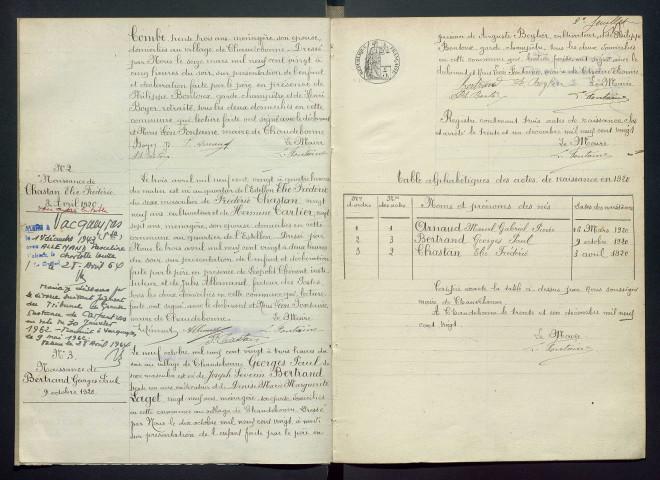 Combe trente trois ans, ménagère, son épouse,
domiciliés au village de Chaudebonne. Dressé
par Nous le seize mars mil neuf cent vingt à
cinq heures du soir, sur présentation de l'enfant
et déclaration faite par le père en présence de
Philippe Bontoux, garde champêtre et de Henri
Boyer retraité, tous les deux domiciliés en cette
commune qui lecture faite ont signé avec le déclarant
et Nous Léon Fontaine maire de Chaudebonne
Le Maire
L. Fontaine
N° 2
Naissance de
Chastan Elie Frédéric
3 Avril 1920
Le trois avril mil neuf cent vingt à quatre heures
du matin est né au quartier de l'Estellon Elie Frédéric
du sexe masculin de Frédéric Chastan, vingt
neuf ans, cultivateur et de Hermine Cartier, vingt
sept ans, ménagère, son épouse, domiciliés en cette
commune au quartier de l'Estellon. Dressé par
Nous le trois avril mil neuf cent vingt à deux heures
du soir, sur présentation de l'enfant et déclaration
faite par le père en présence de Léopold Clément insti-
tuteur et de Jules Allemand, facteur des Postes,
tous les deux domiciliés en cette commune qui, lecture
faite ont signé avec le déclarant et Nous Léon Fontaine,
maire de Chaudebonne. Le Maire
L. Fontaine
Marié à Jacqueyras
le 18 décembre 1943
avec ALLEMAND Marceline
Charlotte
28 Avril 64
Mariage dissous par
le divorce suivant jugement
du Tribunal de Grande
Instance de Carpentras
en date du 30 Janvier
1962
le 9 mai 1962
le 28 Avril 1964
N° 3.
Naissance de
Bertrand Georges Paul
9 octobre 1920
Le neuf octobre mil neuf cent vingt à trois heures du
est né au village de Chaudebonne Georges Paul du
sexe masculin de Joseph Séverin Bertrand
trente un ans, cultivateur et de Denise Marie Marguerite
Larget vingt neuf ans, ménagère, son épouse domiciliés
en cette commune au village de Chaudebonne. Dressé
par Nous le dix octobre mil neuf cent vingt, à midi
sur présentation de l'enfant faite par le père en
2e feuillet
présence de Auguste Boyer, cultivateur, et de Philippe
Bontoux, garde champêtre, tous les deux domiciliés
en cette commune qui lecture faite ont signé avec le
déclarant et Nous Léon Fontaine, maire de Chaudebonne
Bertrand Le Maire
L. Fontaine
Registre contenant trois actes de naissance clos
et arrêté le trente et un décembre mil neuf cent vingt
Le Maire
L. Fontaine
Table alphabétique des actes de naissance en 1920
Nos d'ordre Nos des actes Noms et prénoms des nés Dates des naissances
1 1 Arnaud Marcel Gabriel 16 Mars 1920
2 3 Bertrand Georges Paul 9 octobre 1920
3 2 Chastan Elie Frédéric 3 avril 1920
Certifié exacte la table ci-dessus par Nous soussigné
maire de Chaudebonne.
A Chaudebonne le trente et un décembre mil neuf
cent vingt.
Le Maire
L. Fontaine